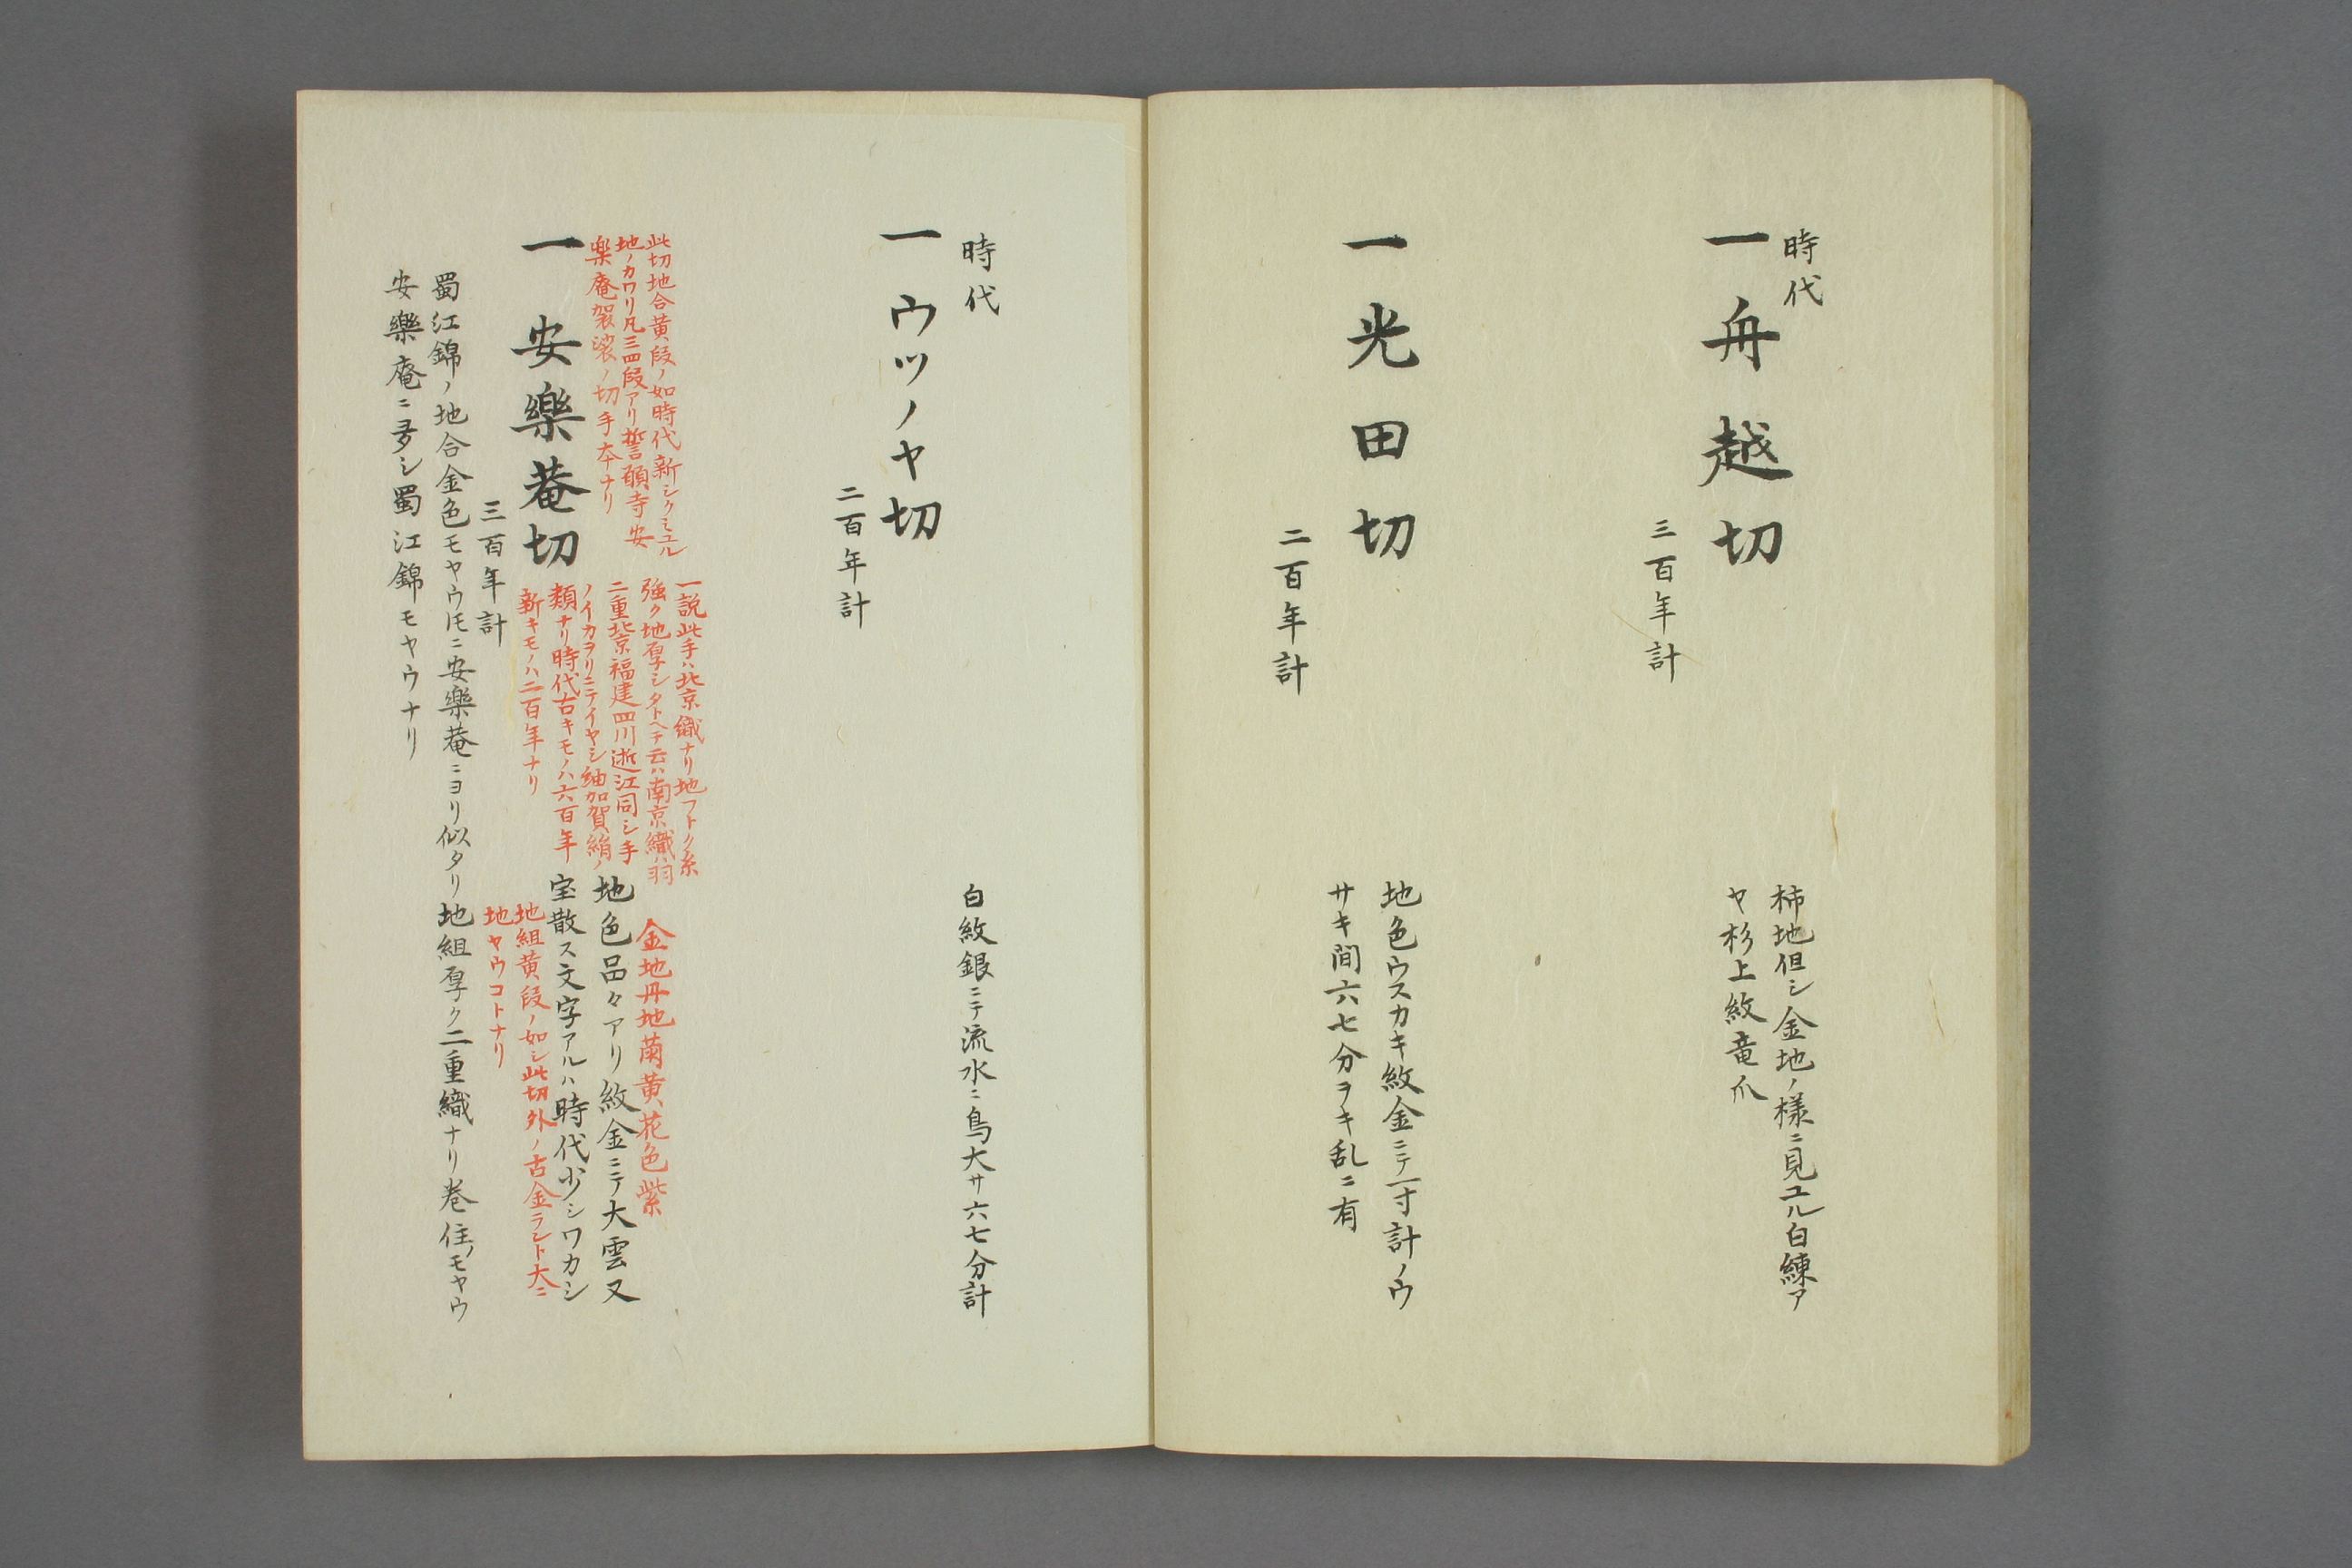 時代
一舟越切
三百年計
柿地但シ金地ノ様ニ見ユル白練ア
ヤ杉上紋竜爪
一光田切
二百年計
地色ウスカキ紋金ニテ一寸計ノウ
サキ間六七分ヲキ乱ニ有
時代
一ウツノヤ切
二百年計
白紋銀ニテ流水ニ鳥大サ六七分計
此切地合黄段ノ如時代新シクミユル
地ノカワリ凡三四段アリ誓願寺安
楽庵袈裟ノ切手本ナリ
一安樂菴切
三百年計
一説此手ハ北京織ナリ地フトク糸
強ク地厚シタトヘテ云ハ南京織ハ羽
二重北京福建四川浙江同シ手
ノイカヲリニテイヤシ紬加賀絹ノ
類ナリ時代古キモノハ六百年
新キモノハ二百年ナリ
金地丹地萠黄花色紫
地色品々アリ紋金ニテ大雲又
宝散ス文字アルハ時代少シワカシ
地組黄段ノ如シ此切外ノ古金ランド大ニ
地ヤウコトナリ
蜀江錦ノ地合金色モヤウ𪜈ニ安樂菴ニヨリ似タリ地組厚ク二重織ナリ巻住ノモヤウ
安樂庵ニ多シ蜀江錦モヤウナリ